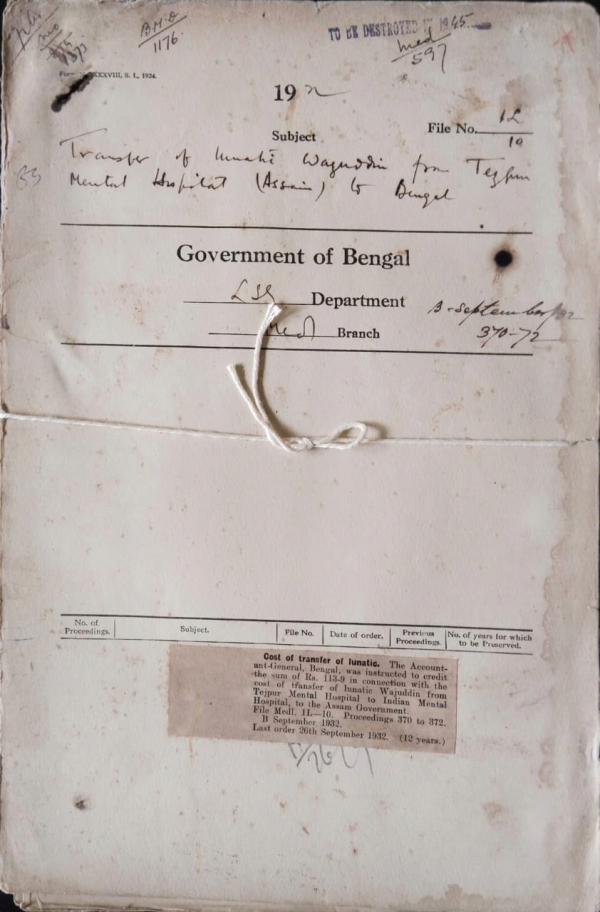 B.M.O
1176
TO BE DESTROYED IN 1945
Med
597
XXXVIII, S. I., 1924.
19
File No. 1L
10
Subject
Transfer of lunatic Wajuddin from Tezpur
Mental Hospital (Assam) to Bengal
Government of Bengal
LSG Department
Medl Branch
B-September/32
370-72
No. of Proceedings.
Subject.
File No.
Date of order.
Previous Proceedings.
No. of years for which to be Preserved.
Cost of transfer of lunatic. The Account-
ant-General, Bengal, was instructed to credit
the sum of Rs. 113-9 in connection with the
cost of transfer of lunatic Wajuddin from
Tejpur Mental Hospital to Indian Mental
Hospital, to the Assam Government.
File Medl. 1L—10. Proceedings 370 to 372.
B September 1932.
Last order 26th September 1932. (12 years.)